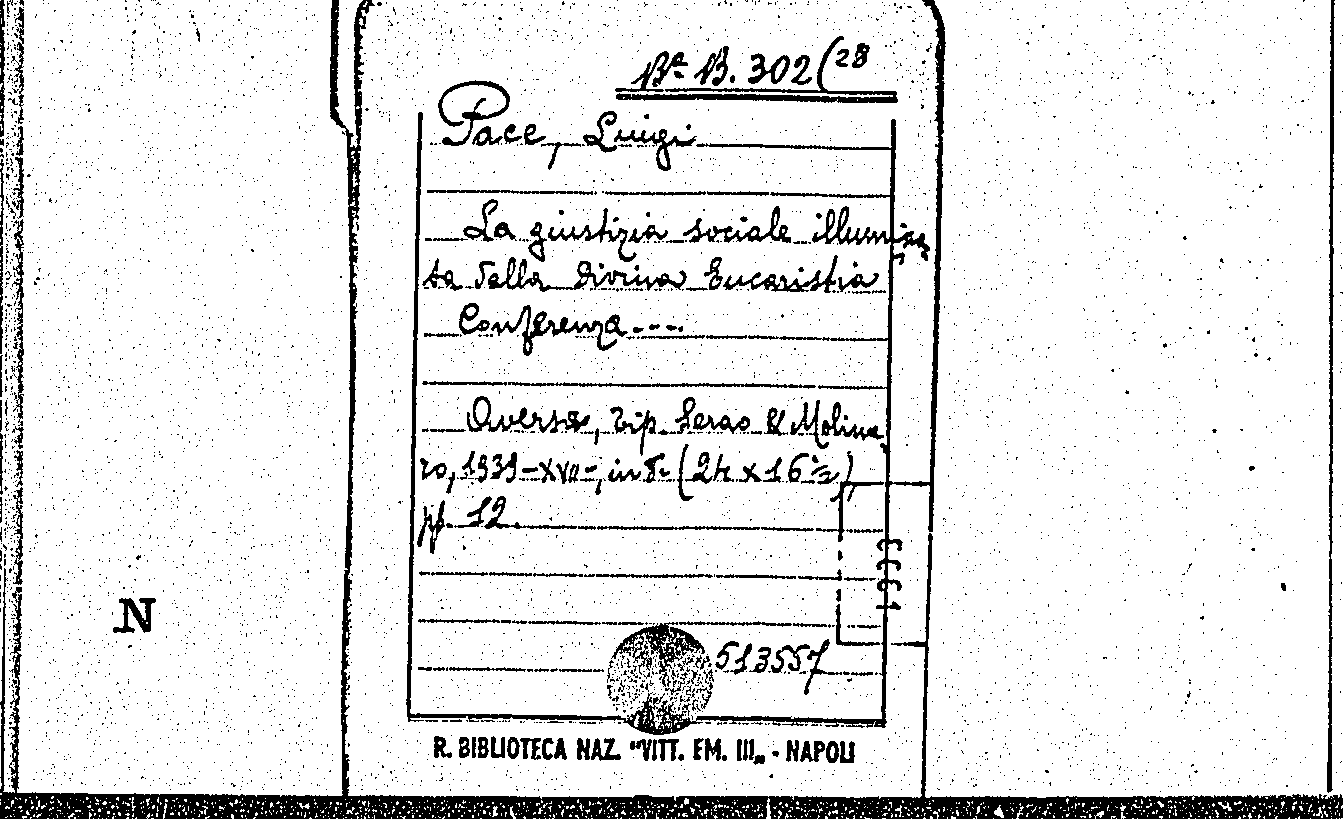 Ba B. 302(28
Pace, Luigi
La giustizia sociale illumina
ta dalla divina Eucaristia
Conferenza....
Aversa, tip. Serao & Molina
ro, 1939-XVII-, in 8° (24 x 16½)
pp. 12.
N
513557
R. BIBLIOTECA NAZ. "VITT. EM. III„ - NAPOLI